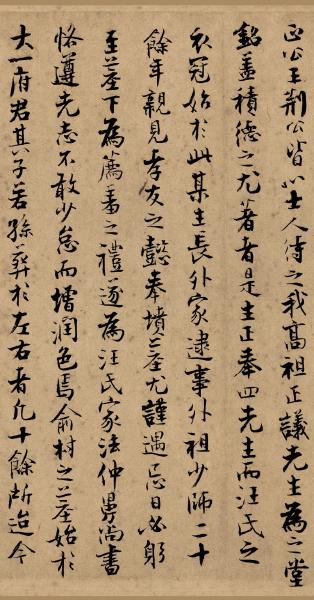 正公王荆公皆以士人待之我高祖正議先生為之堂
銘蓋積德之尤著者是生正奉四先生而汪氏之
衣冠始於此某生長外家逮事外祖少師二十
餘年親見孝友之懿奉墳茔尤謹遇忌日必躬
至茔下為薦羞之禮遂為汪氏家法仲舅尚書
恪遵先志不敢少怠而增潤色焉俞村之茔始於
大一府君其子若孫葬於左右者凡十餘所迨今